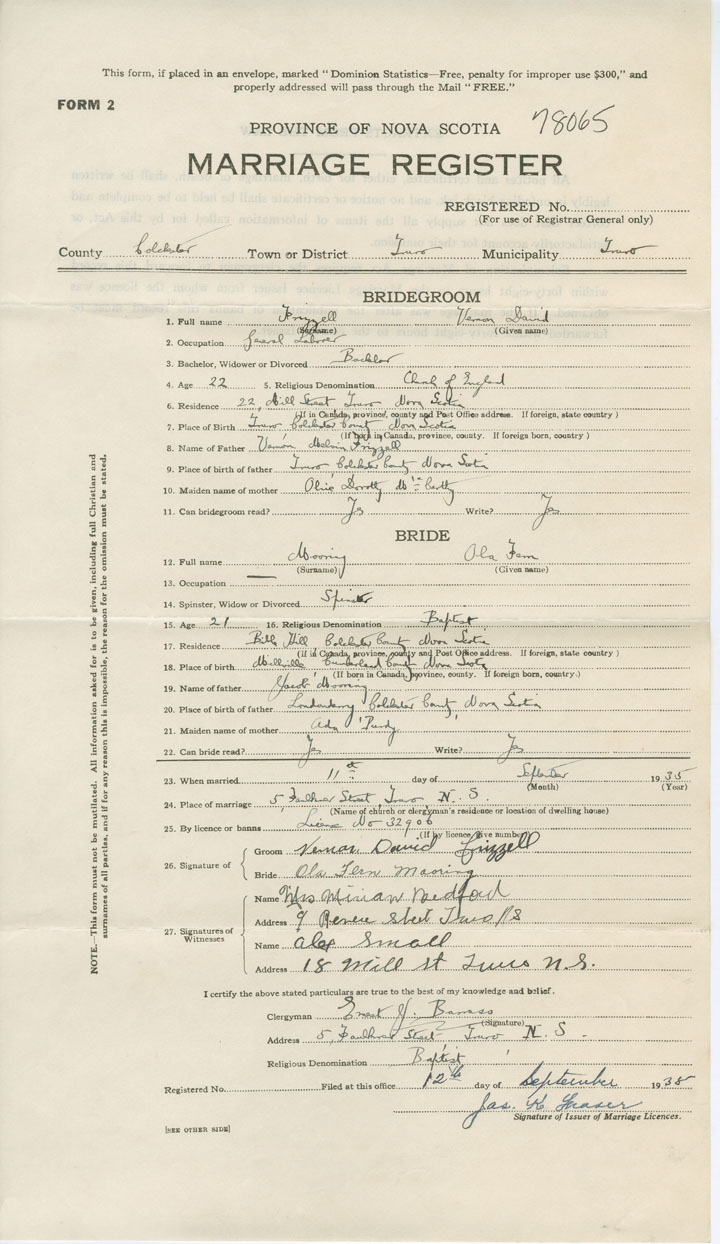 This form, if placed in an envelope, marked "Dominion Statistics—Free, penalty for improper use $300," and
properly addressed will pass through the Mail "FREE."
FORM 2
78065
PROVINCE OF NOVA SCOTIA
MARRIAGE REGISTER
REGISTERED No.
(For use of Registrar General only)
County Colchester Town or District Truro Municipality Truro
BRIDEGROOM
1. Full name Frizzell Vernon David
(Surname) (Given name)
2. Occupation General Laborer
3. Bachelor, Widower or Divorced Bachlor
4. Age 22 5. Religious Denomination Church of England
6. Residence 22, Mill Street Truro Nova Scotia
(If in Canada, province, county and Post Office address. If foreign, state country)
7. Place of Birth Truro Colchester County Nova Scotia
(If born in Canada, province, county. If foreign born, country)
8. Name of Father Vernon Melvin Frizzell
9. Place of birth of father Truro Colchester County Nova Scotia
10. Maiden name of mother Olive Dorothy McCarthy
11. Can bridegroom read? Yes Write? Yes
BRIDE
12. Full name Mooring Ola Fern
(Surname) (Given name)
13. Occupation —
14. Spinster, Widow or Divorced Spinster
15. Age 21 16. Religious Denomination Baptist
17. Residence Bible Hill Colchester County Nova Scotia
(If in Canada, province, county and Post Office address. If foreign, state country)
18. Place of birth Millville Cumberland County Nova Scotia
(If born in Canada, province, county. If foreign born, country.)
19. Name of father Jacob Mooring
20. Place of birth of father Londonderry Colchester County, Nova Scotia
21. Maiden name of mother Ada Purdy
22. Can bride read? Yes Write? Yes
23. When married 11th day of September 1935
(Month) (Year)
24. Place of marriage 5 Street, Truro N. S.
(Name of church or clergyman's residence or location of dwelling house)
25. By licence or banns License No 32906
(If by licence, give number)
26. Signature of
Groom Vernon David Frizzell
Bride Ola Fern Mooring
27. Signatures of Witnesses
Name Mrs Miriam Bedford
Address 9 Revere Street Truro N S
Name Alex Small
Address 18 Mill st Truro N.S.
I certify the above stated particulars are true to the best of my knowledge and belief.
Clergyman Ernest J. Barrass
(Signature)
Address 5, Street Truro N. S.
Religious Denomination Baptist
Registered No. Filed at this office 12th day of September 1935
Jas. K. Fraser
Signature of Issuer of Marriage Licences.
[SEE OTHER SIDE]
NOTE.—This form must not be mutilated. All information asked for is to be given, including full Christian and
surnames of all parties, and if for any reason this is impossible, the reason for the omission must be stated.